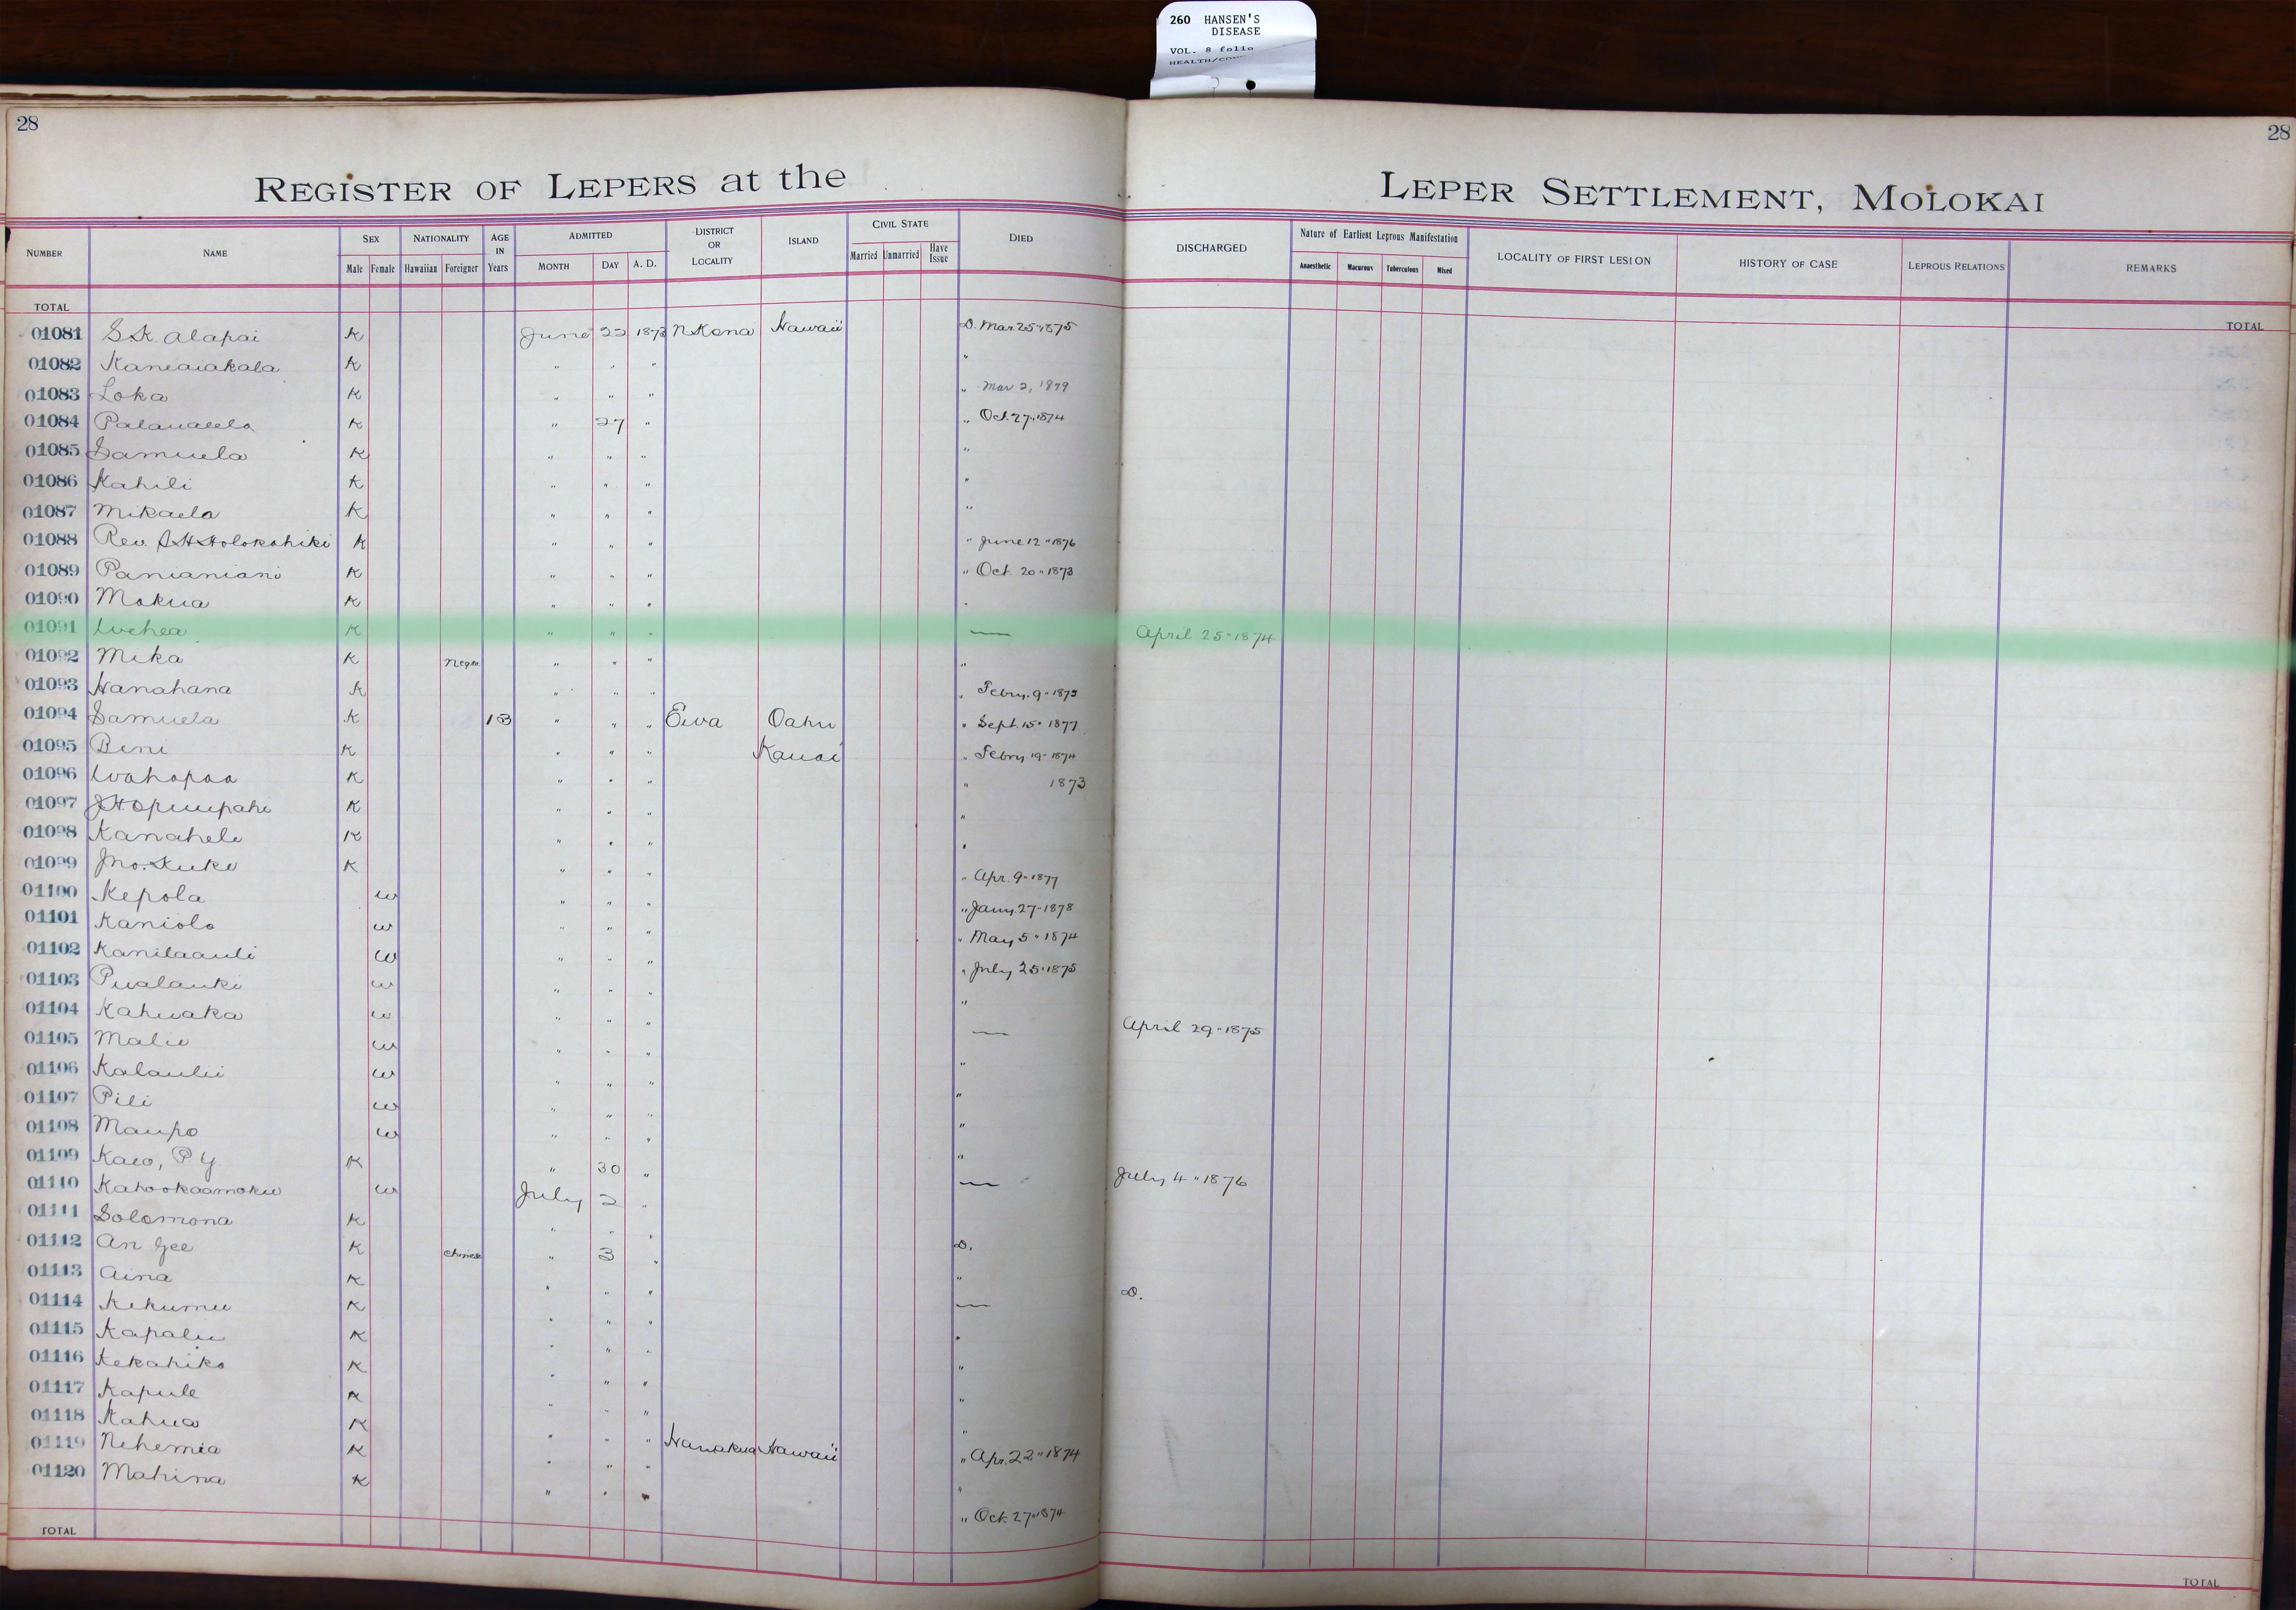 260 HANSEN'S
DISEASE
VOL. 8 folio
28
28
REGISTER OF LEPERS at the LEPER SETTLEMENT, MOLOKAI
NUMBER NAME SEX NATIONALITY AGE IN Years ADMITTED DISTRICT OR LOCALITY ISLAND CIVIL STATE DIED DISCHARGED Nature of Earliest Leprous Manifestation LOCALITY OF FIRST LESION HISTORY OF CASE LEPROUS RELATIONS REMARKS
Male Female Hawaiian Foreigner MONTH DAY A. D. Married Unmarried Have Issue Anaesthetic Macurous Tuberculous Mixed
TOTAL TOTAL
01081 S.K. Alapai K June 22 1873 N Kona Hawaii D. Mar. 25 " 1875
01082 Kaneaiakala K " " " "
01083 Loka K " " " " Mar 2, 1879
01084 K " 27 " " Oct. 27 " 1874
01085 Samuela K " " " "
01086 Kahili K " " " "
01087 Mikaela K " " " "
01088 Rev. S H Holokahiki K " " " " June 12 " 1876
01089 Panianiani K " " " " Oct. 20 " 1873
01090 Mokua K " " " "
01091 Wehea K " " " — April 25 " 1874
01092 Mika K Negro " " " "
01093 Hanahana K " " " " Febry. 9 " 1875
01094 Samuela K 13 " " " Ewa Oahu " Sept. 15 " 1877
01095 Beni K " " " Kauai " Febry 19 " 1874
01096 Wahapaa K " " " " 1873
01097 J.H. Opuupahi K " " " "
01098 Kanahele K " " " "
01099 Jno. Kuke K " " " " Apr. 9 " 1877
01100 Kepola w " " " " Jany. 27 " 1878
01101 Kaniolo w " " " " May 5 " 1874
01102 Kanilaauli w " " " " July 25 " 1875
01103 Pualauki w " " " "
01104 Kahuaka w " " " — April 29 " 1875
01105 Malie w " " " "
01106 Kalaulii w " " " "
01107 Pili w " " " "
01108 Maupo w " " " "
01109 Kaeo, P Y K " 30 " — July 4 " 1876
01110 Kahookaamoku w July 2 "
01111 Solomona K " " " D.
01112 An Gee K Chinese " 3 " "
01113 Aina K " " " — D.
01114 Kekumu K " " " "
01115 Kapalu K " " " "
01116 Kekahiko K " " " "
01117 Kapule K " " " "
01118 Kahua K " " "
01119 Nehemia K " " " Hamakua Hawaii " Apr. 22 " 1874
01120 Mahina K " " " " Oct. 27 " 1874
TOTAL TOTAL